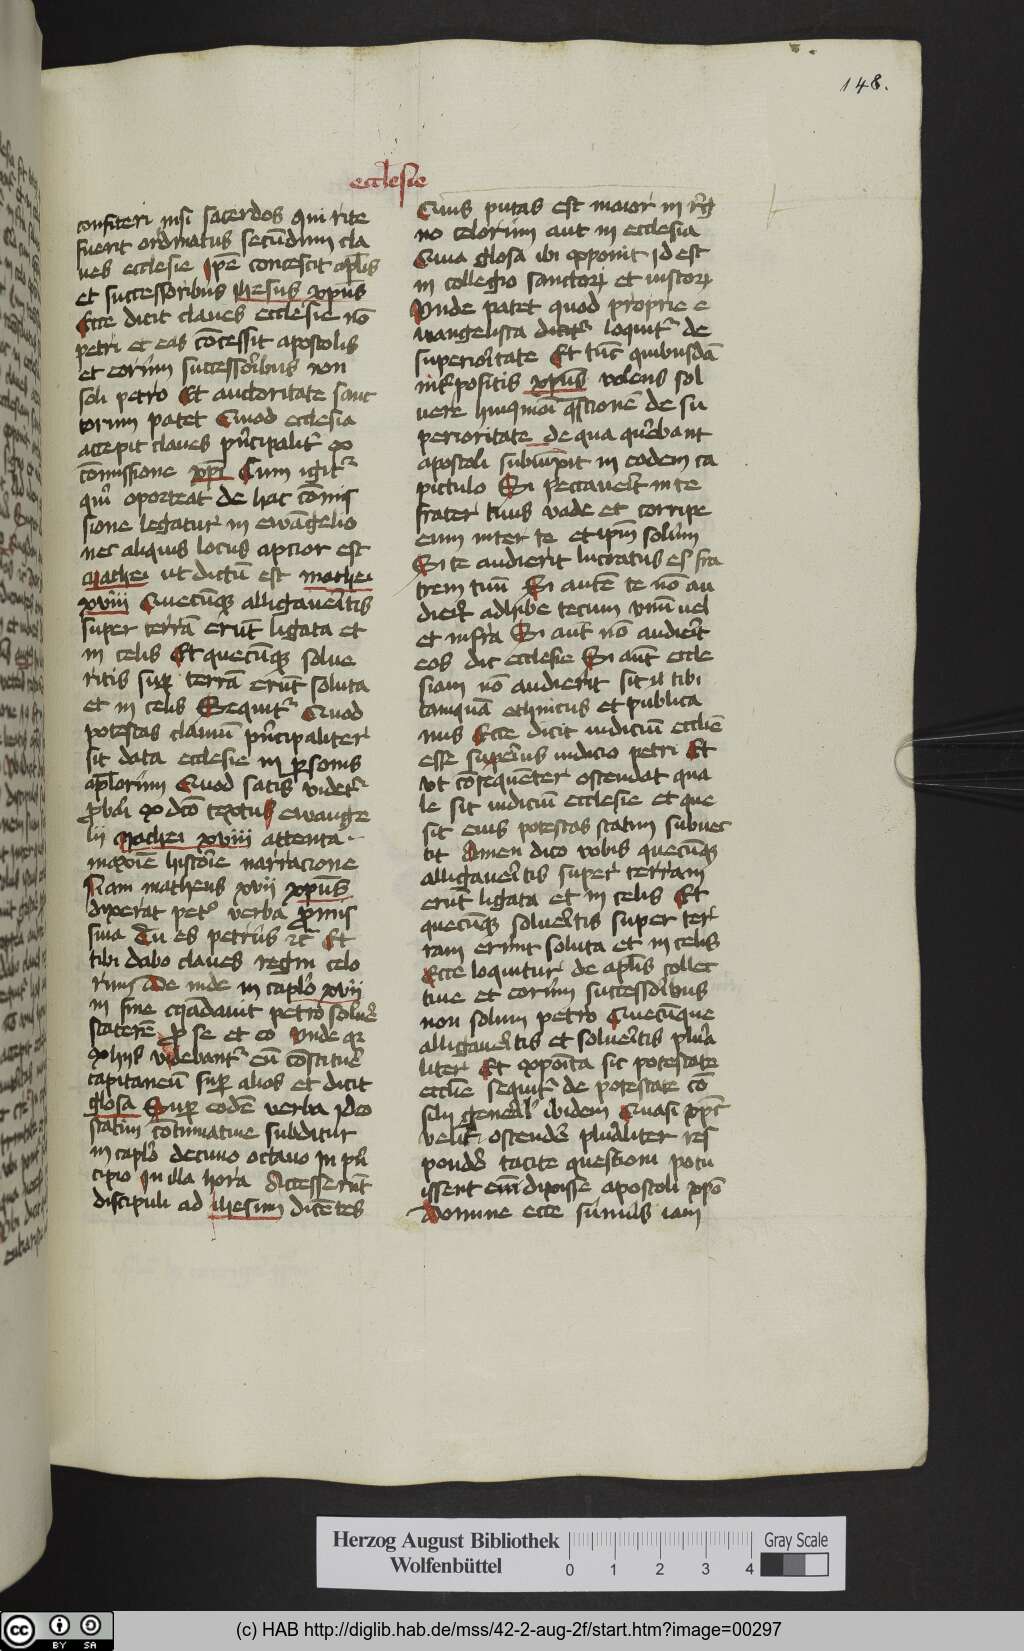 148.
ecclesie
confiteri nisi sacerdos qui rite
fuerit ordinatus secūdum cla
ues ecclesie Ipē concescit apl̄is
et successoribus Ihesus xpūs
Ecce dicit claues ecclesie nō
petri et eas cōcessit apostolis
et eorum successoribus non
soli petro Et auctoritate sanc
torum patet Quod ecclesia
accepit claues pⁱncipalitʳ ex
cōmissione xpi Cum igitʳ
oporteat de hac cōmis
sione legatur in ewāgelio
nec aliquis locus apcior est
Mathei ut dictū est mathei
xviii Quecūqꝫ alligaueritis
super terrā erūt ligata et
in celis Et quecūqꝫ solue
ritis suꝑ terrā erūt soluta
et in celis Sequitʳ Quod
potestas clauiū pⁱncipaliter
sit data ecclesie in ꝑsonis
apl̄orum Quod satis videtʳ
ꝓbari ex dc̄o textus ewange
lii Mathei xviii attenta
maxīe historie narracione
Nam matheus xvii xpūs
dixerat petʳ verba ꝓmis
siua Tu es petrus ⁊c̄ Et
tibi dabo claues regni celo
rum De inde in caplo xvii
in fine mādauit petro soluē
staterē ꝓ se et eo Vnde qꝛ
ex hiis videbantʳ eū cōstituē
capitaneū suꝑ alios et dicit
glosa Suꝑ eodē verba Ideo
statim cōtinuatiue subditur
in caplo decimo octauo In pⁱn
cipio In illa hora Accesserūt
discipuli ad ihesum dicētes
Quis putas est maior in reg
no celorum aut in ecclesia
Quia glosa ibi exponit id est
in collegio sanctoꝝ et iustoꝝ
Vnde patet quod proprie e
wangelista dicitʳ loquitʳ de
superioritate Et tūc quibusdā
intʳpositis xpūs volens sol
uere huiusmōi q̄stionē de su
perioritate de qua querebant
apostoli subiūxit in eodem ca
pitulo Si peccauerit in te
frater tuus vade et corripe
eum inter te et ip̄m solum
Si te audierit lucratus es fra
trem tuū Si autē te nō au
dierit adhibe tecum vnū uel
et infra Si aut̄ nō audierit
eos dic ecclesie Si aūt eccle
siam nō audierit sit tibi
tamquā ethnicus et publica
nus Ecce dicit iudiciū eccl̄ie
esse superius iudicio petri Et
vt cōsequēter ostendat qua
le sit iudiciū ecclesie et que
sit eius potestas statim subuec
tit Amen dico vobis quecūqꝫ
alligaueritis super terram
erūt ligata et in celis Et
quecūqꝫ solueritis super ter
ram erunt soluta et in celis
Ecce loquitur de apl̄is collec
tiue et eorum successoribus
non solum petro Quecūque
alligaueritis et solueritis plura
liter Et exposita sic potestate
eccl̄ie sequitʳ de potestate cō
silii generalʳ ibidem Quasi xpc̄
velit ostendē pluraliter res
pondē tacite questioni potu
issent eni dixisse apostoli xpō
Domine ecce sumus iam
Herzog August Bibliothek
Wolfenbüttel
0 1 2 3 4
Gray Scale
cc BY SA
(c) HAB http://diglib.hab.de/mss/42-2-aug-2f/start.htm?image=00297